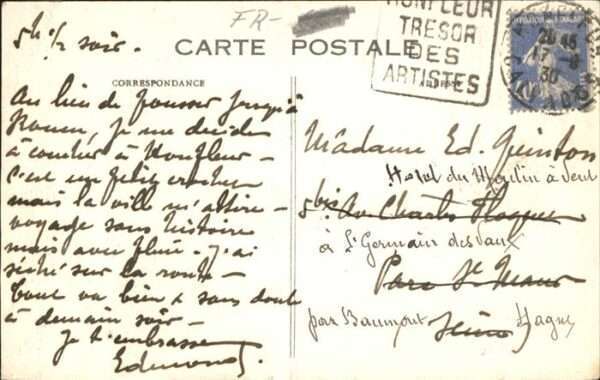 FR-
5h 1/2 soir.
CARTE POSTALE
HONFLEUR
TRESOR
DES
ARTISTES
CORRESPONDANCE
ADRESSE
Au lieu de pousser jusqu'à
Rouen, je me décide
à coucher à Honfleur -
C'est un petit crochet
mais la ville m'attire -
voyage sans histoire
mais avec pluie. J'ai
séché sur la route -
Tout va bien & sans doute
à demain soir -
Je t'embrasse
Edmond.
Madame Ed. Quinton
Hotel du Moulin à Vent
5bis Av. Charles Floquet
à St Germain des Vaux
Parc St Maur
par Beaumont Hague
Seine
20 45
17 - 8
30
CALVADOS